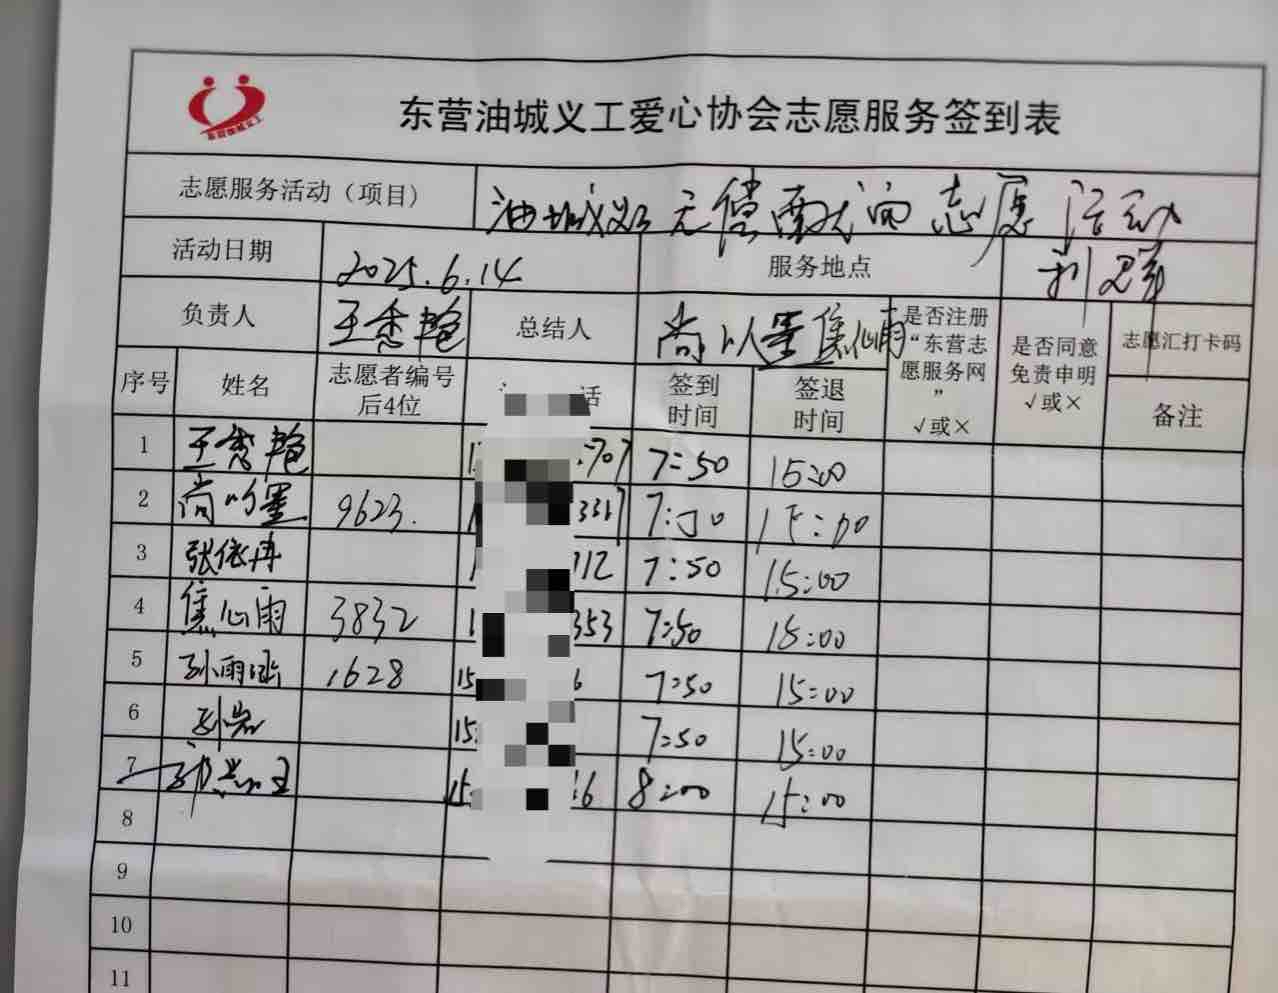 东营油城义工
东营油城义工爱心协会志愿服务签到表
志愿服务活动（项目） 油城义工无偿献血志愿活动
活动日期 2025.6.14 服务地点 利群
负责人 王秀艳 总结人 尚以墨 焦心雨 是否注册“东营志愿服务网”√或× 是否同意免责申明√或× 志愿汇打卡码
序号 姓名 志愿者编号后4位 话 签到时间 签退时间 备注
1 王秀艳 707 7:50 15:00
2 尚以墨 9623. 7:50 15:00
3 张依冉 112 7:50 15:00
4 焦心雨 3832 353 7:50 15:00
5 孙雨涵 1628 15 6 7:50 15:00
6 15 7:50 15:00
7 15 16 8:00 15:00
8
9
10
11